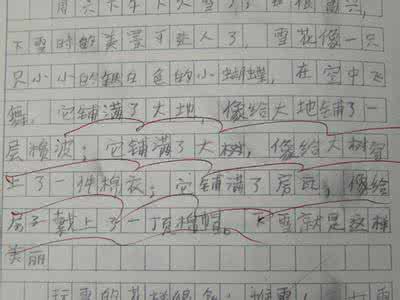 周六下午下大雪了
下雪时的美景可迷人了，雪花像一只
只小小的银白色的小蝴蝶，在空中飞
舞。它铺满了大地，像给大地铺了一
层棉被；它铺满了大树，像给大树穿
上了一件棉衣；它铺满了房瓦，像给
房子戴上了一顶棉帽。下雪就是这样
美丽
玩雪的花样很多